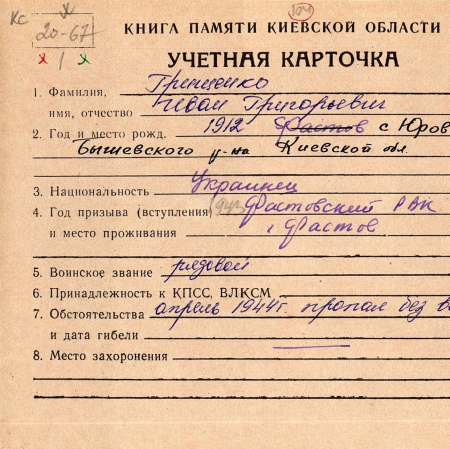 КС X
20-67
X 1 X
104
КНИГА ПАМЯТИ КИЕВСКОЙ ОБЛАСТИ
УЧЕТНАЯ КАРТОЧКА
1. Фамилия, Гриненко
имя, отчество Иван Григорьевич
2. Год и место рожд. 1912 Фастов с Юров
Бышевского р-на Киевской обл.
3. Национальность Украинец
4. Год призыва (вступления) Фастовский РВК
и место проживания г Фастов
5. Воинское звание рядовой
6. Принадлежность к КПСС, ВЛКСМ
7. Обстоятельства апрель 1944г. пропал без в
и дата гибели
8. Место захоронения